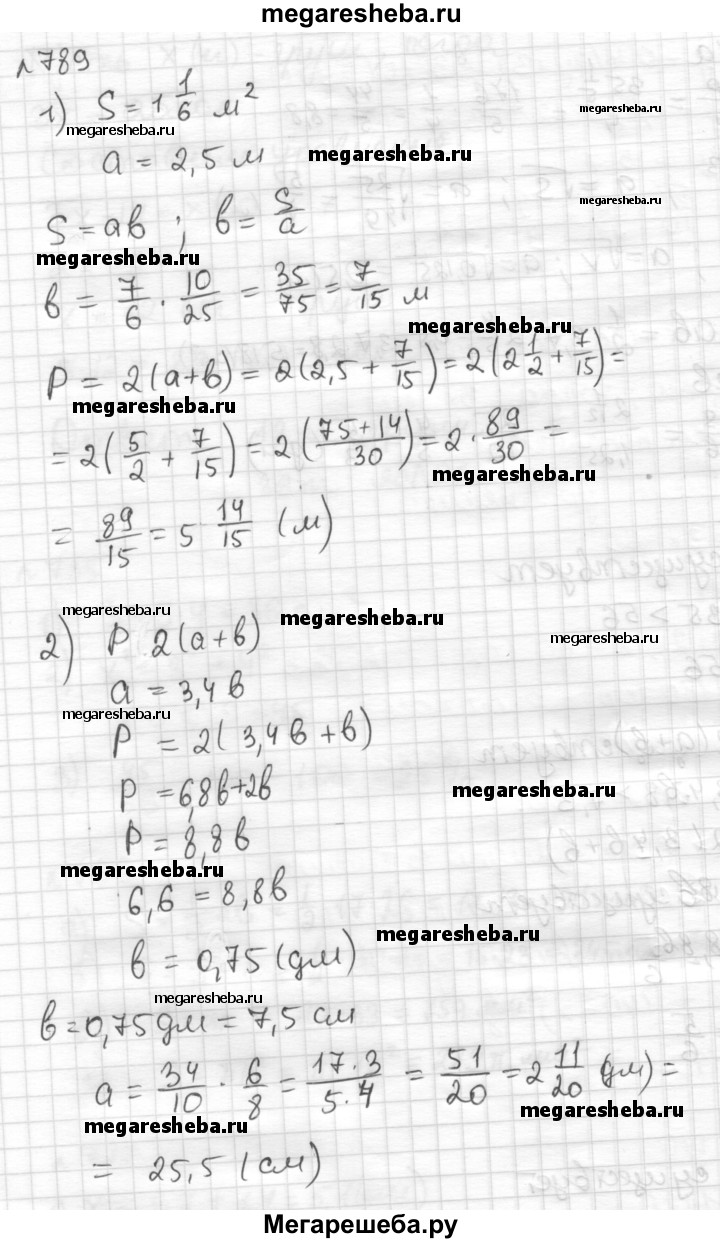 megaresheba.ru
№789
1) S = 1 1/6 м²
megaresheba.ru
megaresheba.ru
a = 2,5 м
megaresheba.ru
S = aв ; в = S/a
megaresheba.ru
megaresheba.ru
в = 7/6 · 10/25 = 35/75 = 7/15 м
megaresheba.ru
P = 2(a+в) = 2(2,5 + 7/15) = 2(2 1/2 + 7/15) =
megaresheba.ru
= 2(5/2 + 7/15) = 2(75+14/30) = 2 · 89/30 =
megaresheba.ru
= 89/15 = 5 14/15 (м)
megaresheba.ru
megaresheba.ru
2) P 2(a+в)
megaresheba.ru
a = 3,4 в
megaresheba.ru
P = 2(3,4в + в)
P = 6,8в+2в
megaresheba.ru
P = 8,8 в
megaresheba.ru
6,6 = 8,8в
megaresheba.ru
в = 0,75 (дм)
megaresheba.ru
в = 0,75 дм = 7,5 см
a = 34/10 · 6/8 = 17·3/5·4 = 51/20 = 2 11/20 (дм) =
megaresheba.ru
megaresheba.ru
= 25,5 (см)
Мегарешеба.ру